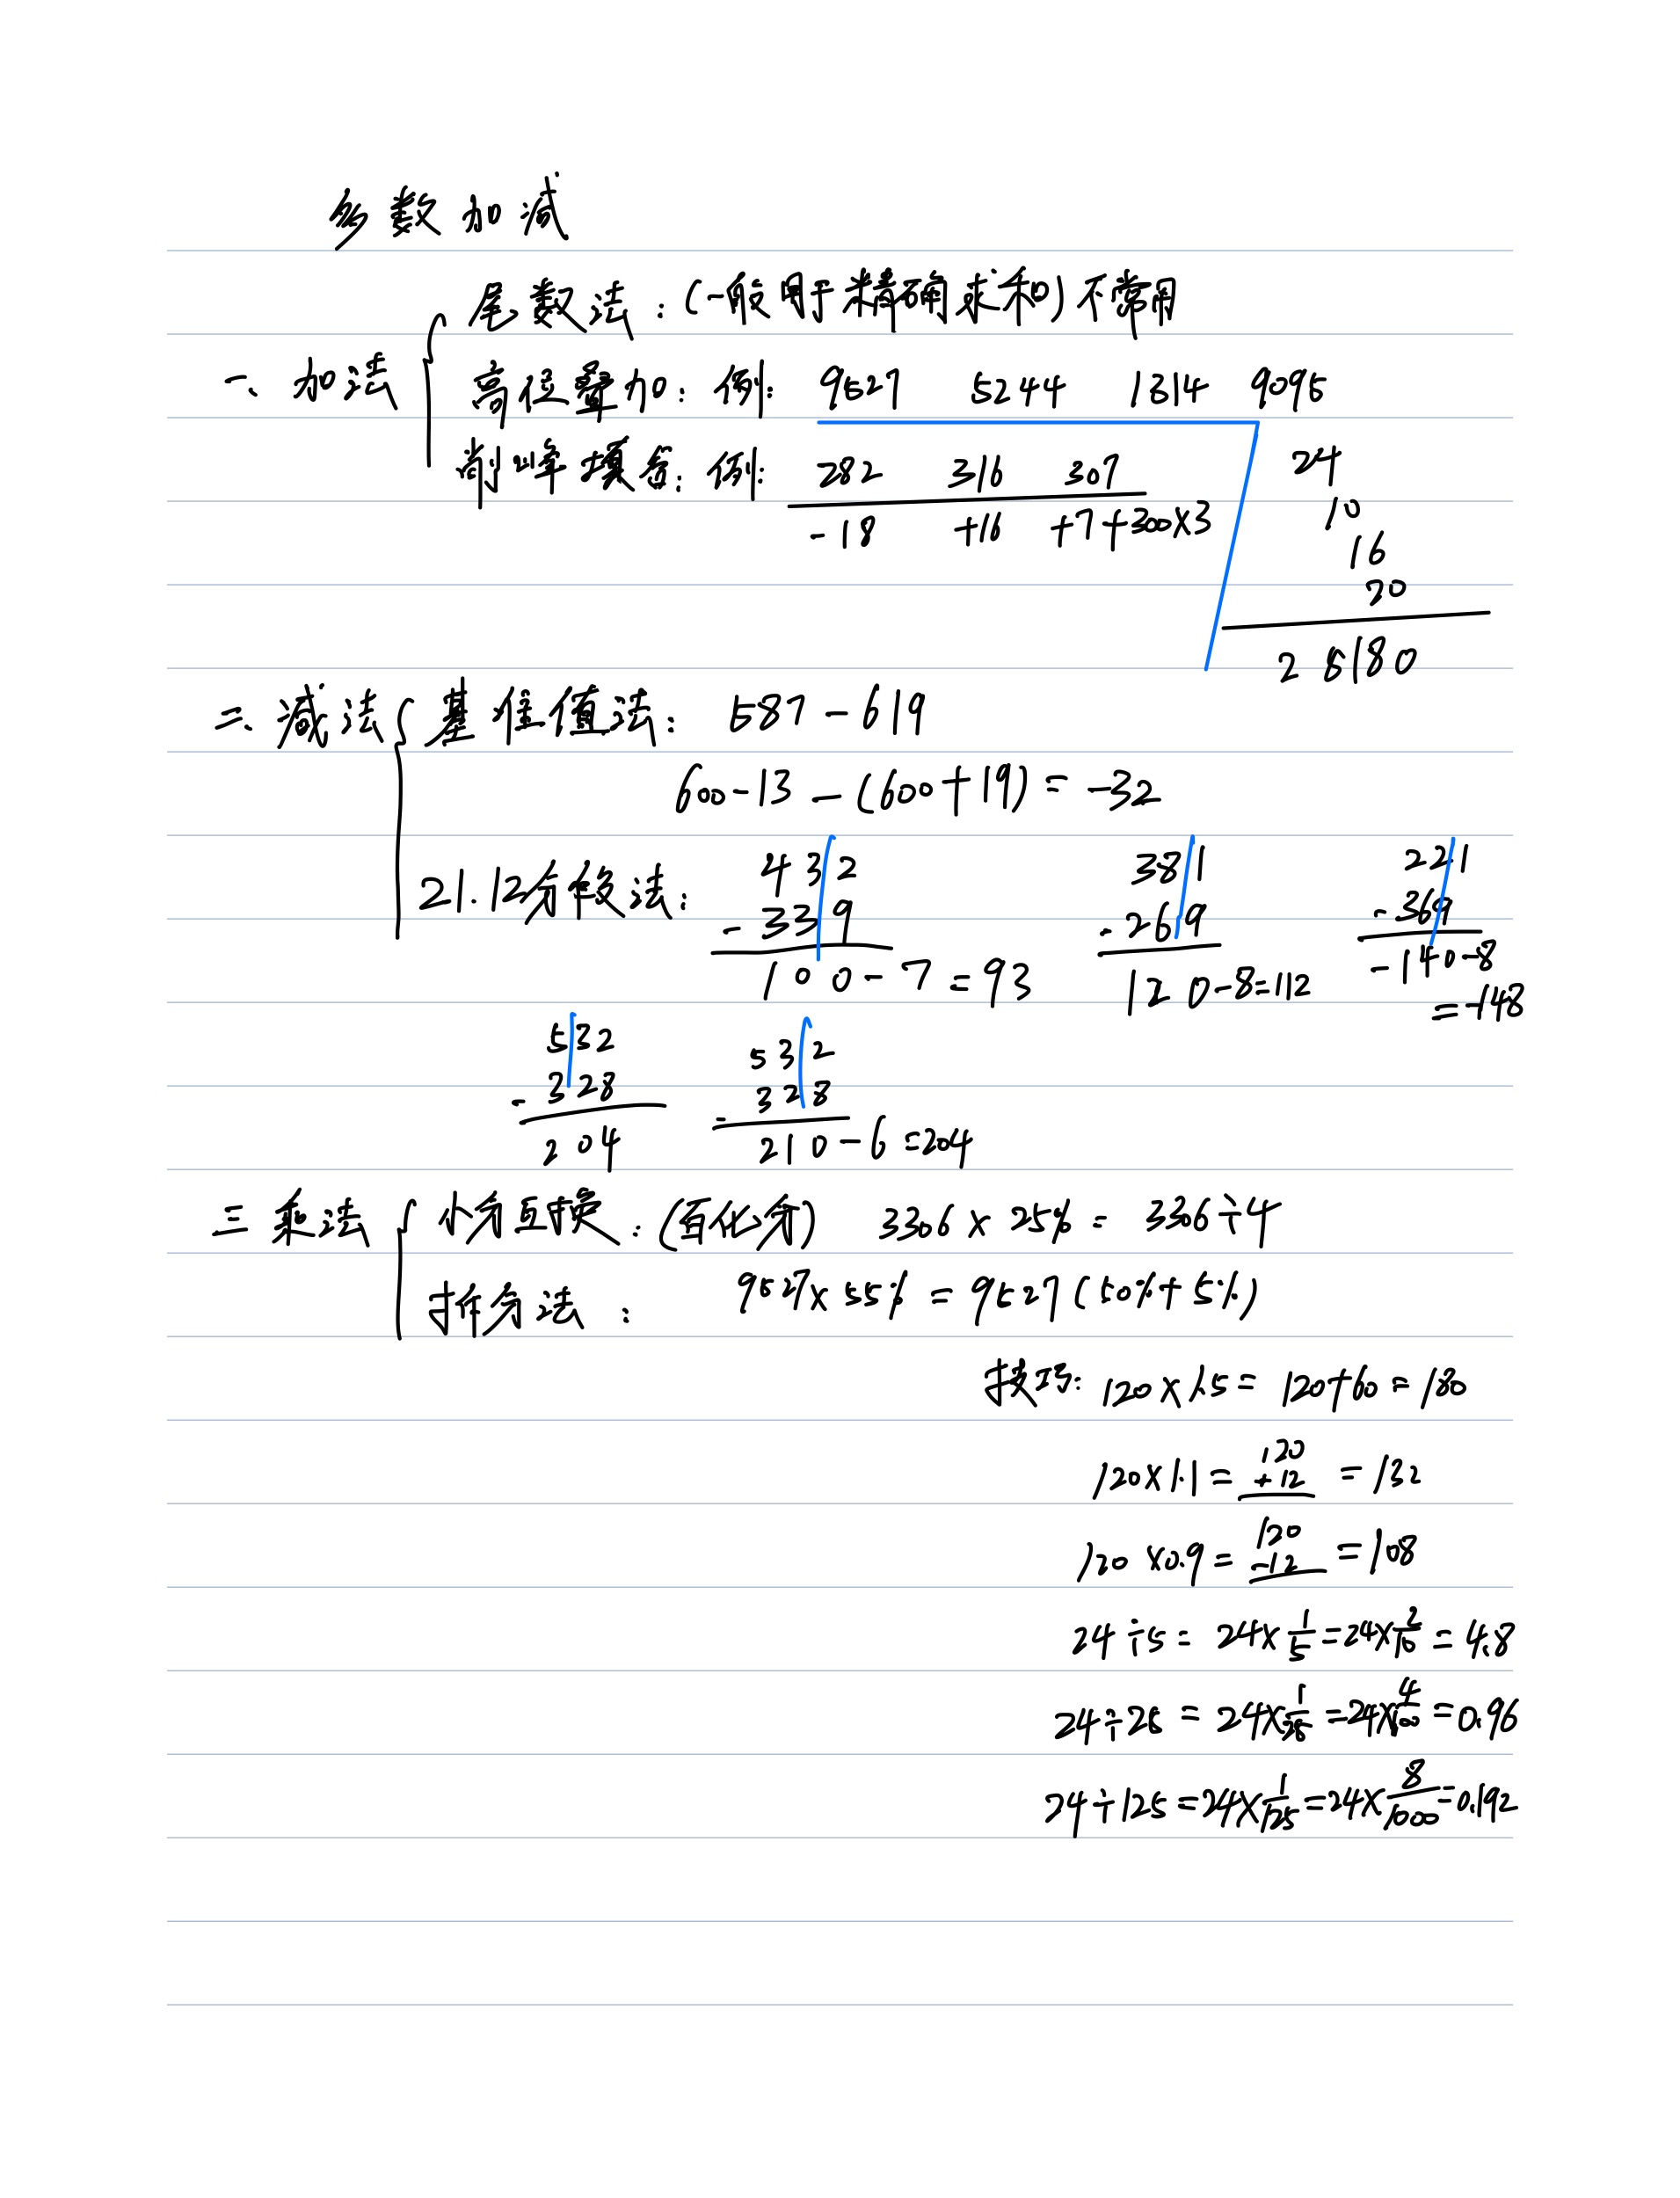 多数加减
一、加法
尾数法：(一般用于精确求和) 不常用
高位叠加：例：9527 5244 1314 9095
24
10
16
20
25180
削峰填谷：例：282 316 307
-18 +16 +7+300×3
二、减法
基准值法：587-619
600-13-(600+19)=-32
21.12分段法：
432 381 221
-339 -269 -369
100-7=93 120-8=112 -140-8
=-148
532 532
-328 -328
204 210-6=204
三 乘法
小分互换：(百化分) 336×25%=336÷4
拆分法： 9527×55%=9527(50%+5%)
技巧：120×1.5=120+60=180
120×1.1= 120 +12 =132
120×0.9= 120 -12 =108
24÷5=24×1/5=24×2/10=4.8
24÷25=24×1/25=24×4/100=0.96
24÷125=24×1/125=24×8/1000=0.192